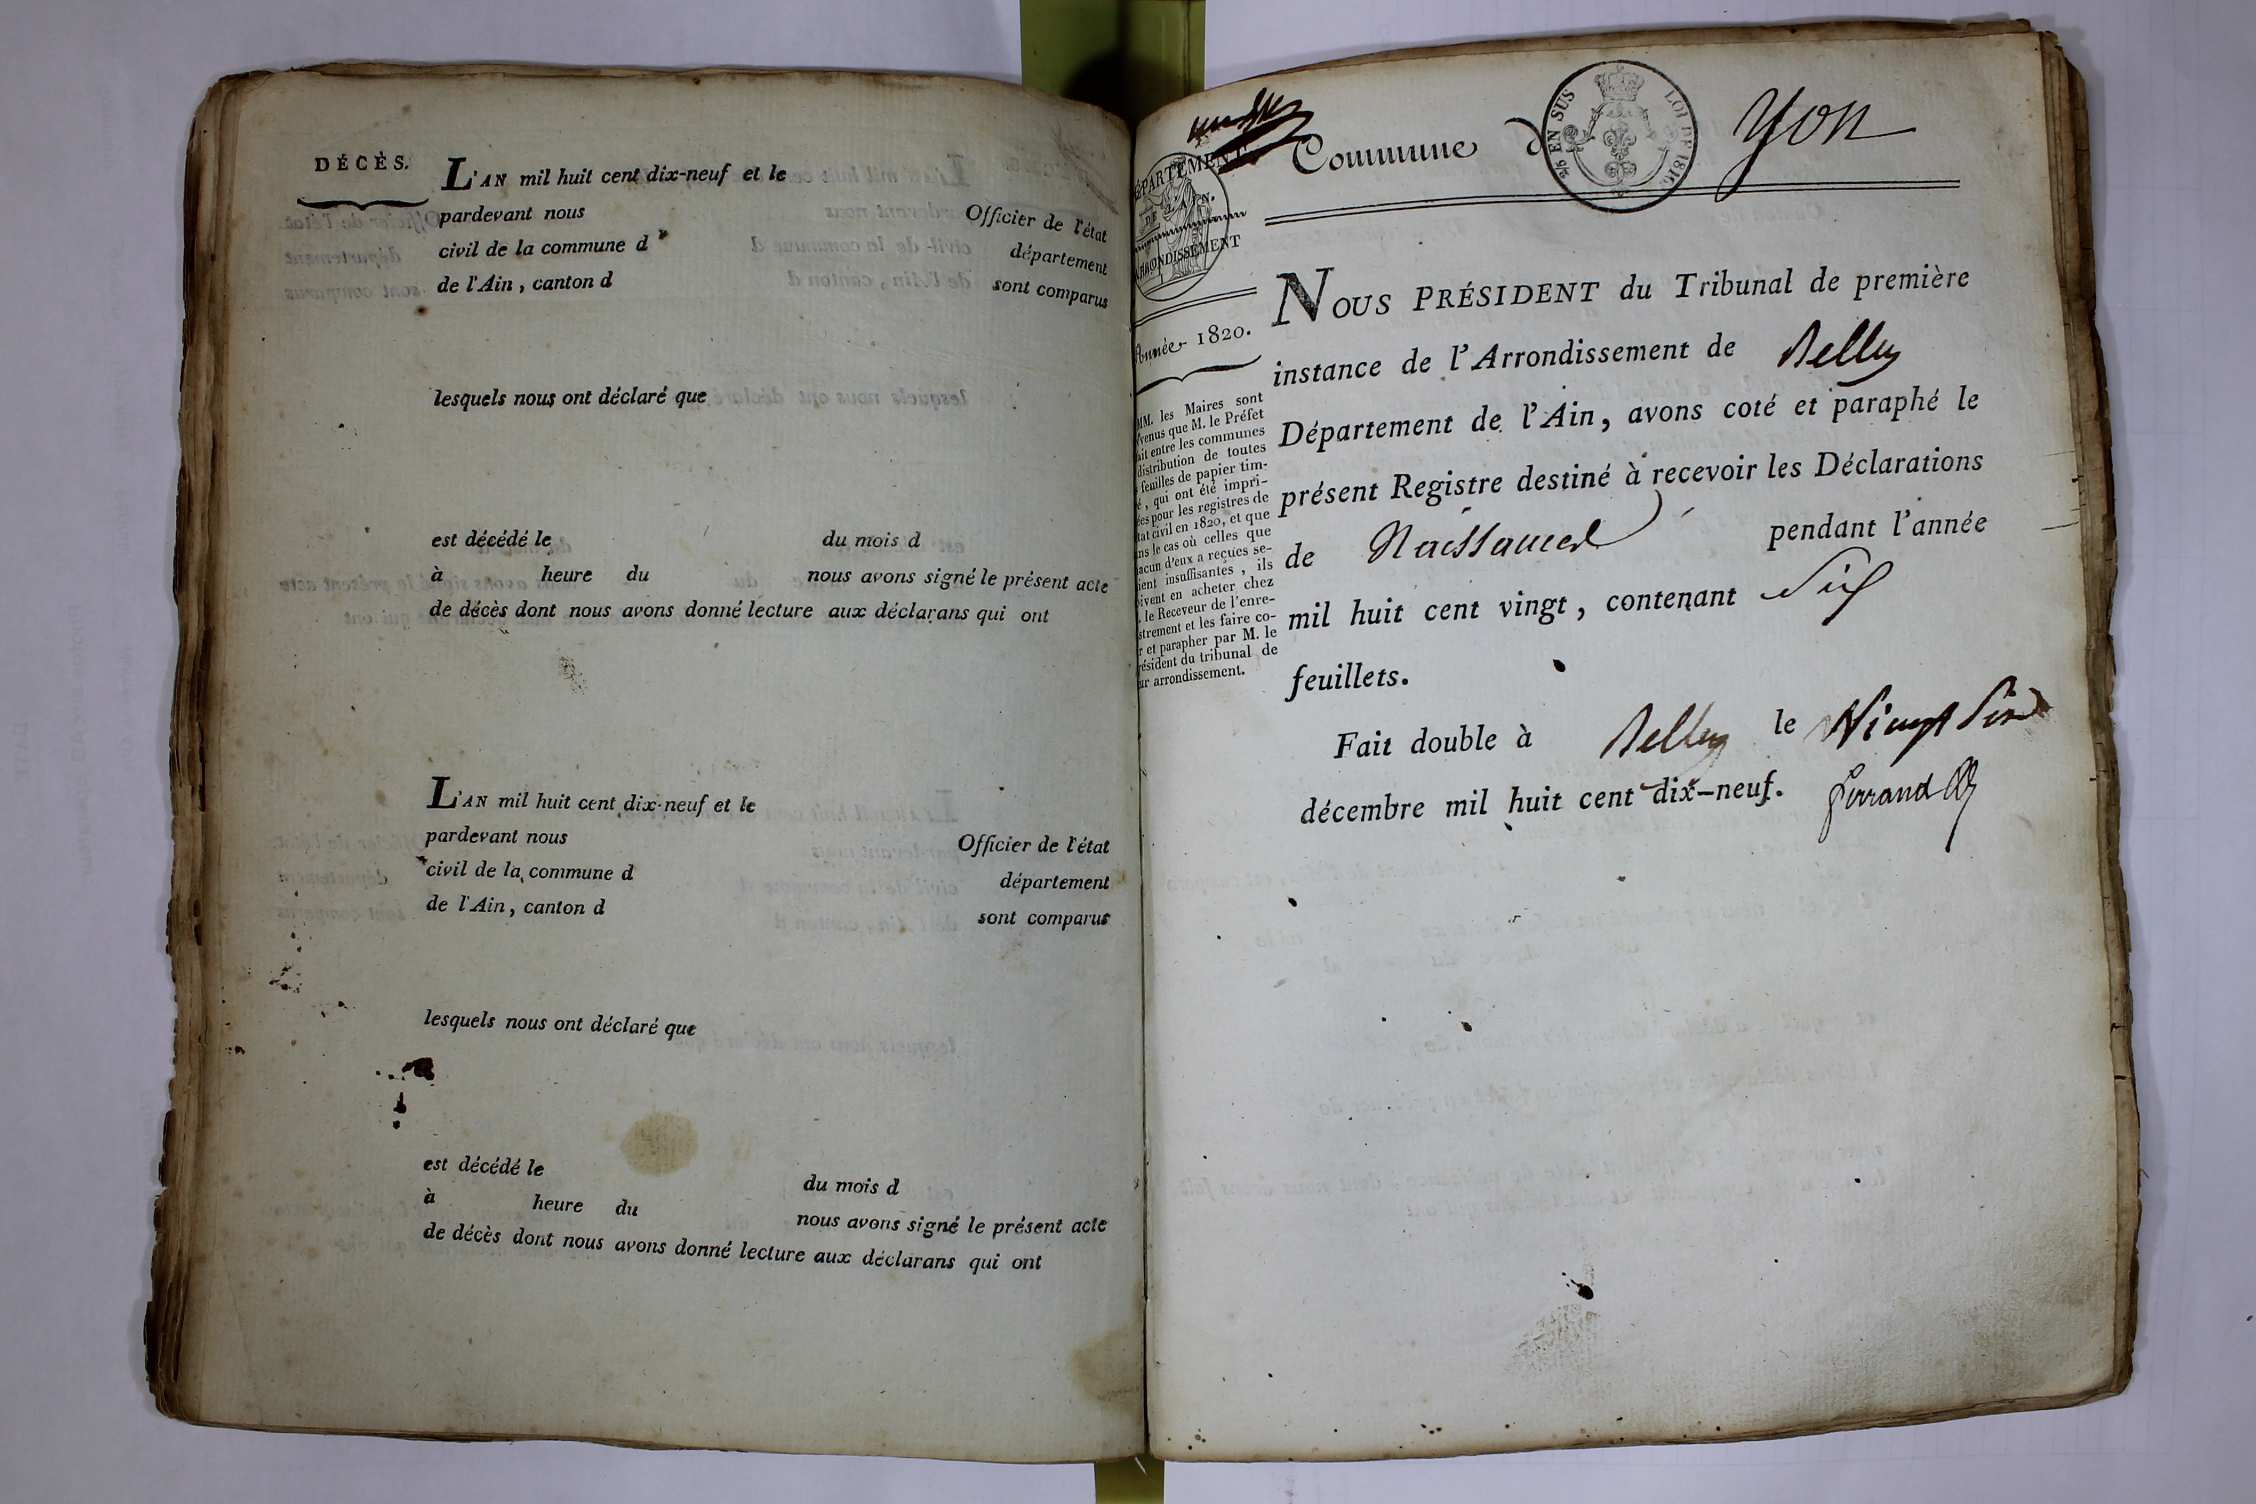 DÉCÈS.
L'AN mil huit cent dix-neuf et le
pardevant nous Officier de l'état
civil de la commune d département
de l'Ain, canton d sont comparus
lesquels nous ont déclaré que
est décédé le du mois d
à heure du nous avons signé le présent acte
de décès dont nous avons donné lecture aux déclarans qui ont
L'AN mil huit cent dix-neuf et le
pardevant nous Officier de l'état
civil de la commune d département
de l'Ain, canton d sont comparus
lesquels nous ont déclaré que
est décédé le du mois d
à heure du nous avons signé le présent acte
de décès dont nous avons donné lecture aux déclarans qui ont
Commune d Yon
EN SUS LOI DE 1816
DÉPARTEMENT
DE L'AIN.
ARRONDISSEMENT
Année 1820.
MM. les Maires sont
venus que M. le Préfet
ait entre les communes
distribution de toutes
feuilles de papier tim-
é, qui ont été impri-
ées pour les registres de
tat civil en 1820, et que
ns le cas où celles que
acun d'eux a reçues se-
ient insuffisantes, ils
ivent en acheter chez
. le Receveur de l'enre-
strement et les faire co-
r et parapher par M. le
résident du tribunal de
ur arrondissement.
NOUS PRÉSIDENT du Tribunal de première
instance de l'Arrondissement de Belley
Département de l'Ain, avons coté et paraphé le
présent Registre destiné à recevoir les Déclarations
de Naissances pendant l'année
mil huit cent vingt, contenant Six
feuillets.
Fait double à Belley le Vingt Six
décembre mil huit cent dix-neuf.